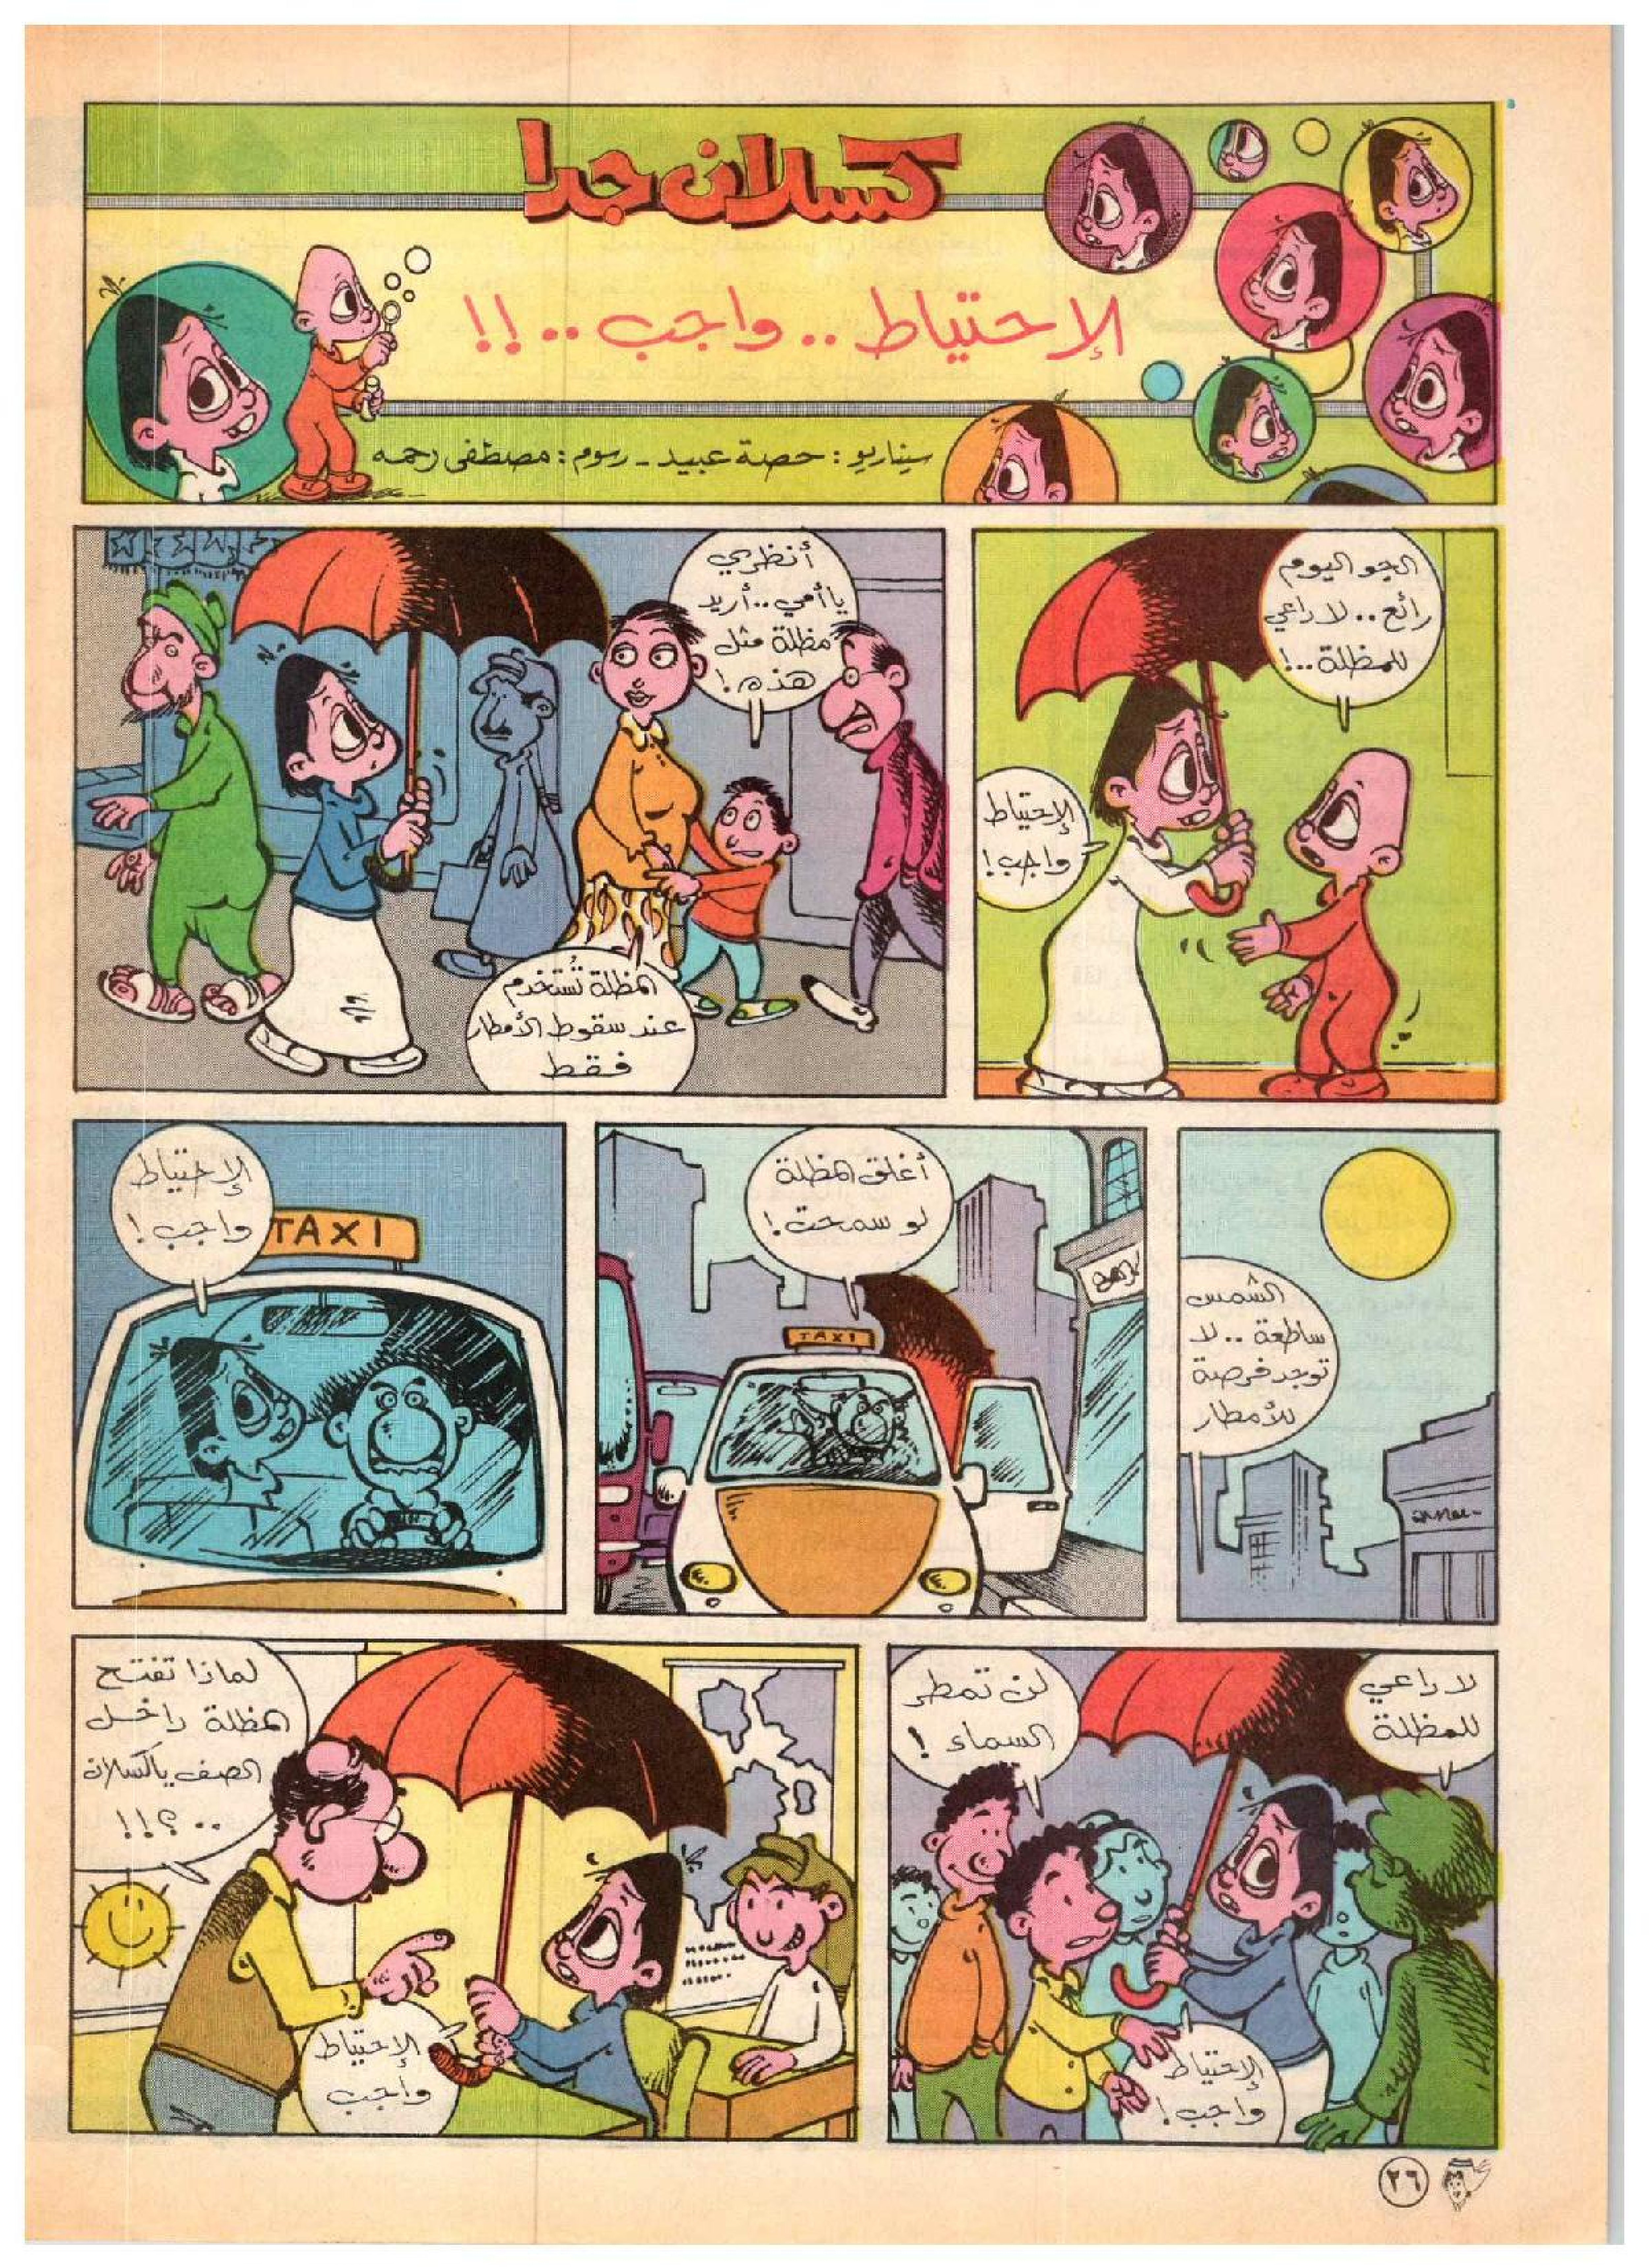 كسلان جدا
الإحتياط .. واجب .. !!
سيناريو : حصة عبيد - رسوم : مصطفى رحمه
الجو اليوم
رائع .. لا داعي
للمظلة .. !
الإحتياط
واجب !
أنظري
يا أمي .. أريد
مظلة مثل
هذه !
المظلة تُستخدم
عند سقوط الأمطار
فقط
الشمس
ساطعة .. لا
توجد فرصة
للأمطار
أغلق المظلة
لو سمحت !
TAXI
الإحتياط
واجب !
TAXI
لا داعي
للمظلة
لن تمطر
السماء !
الإحتياط
واجب !
لماذا تفتح
المظلة داخل
الصف ياكسلان
.. ؟!!
الإحتياط
واجب
٢٦